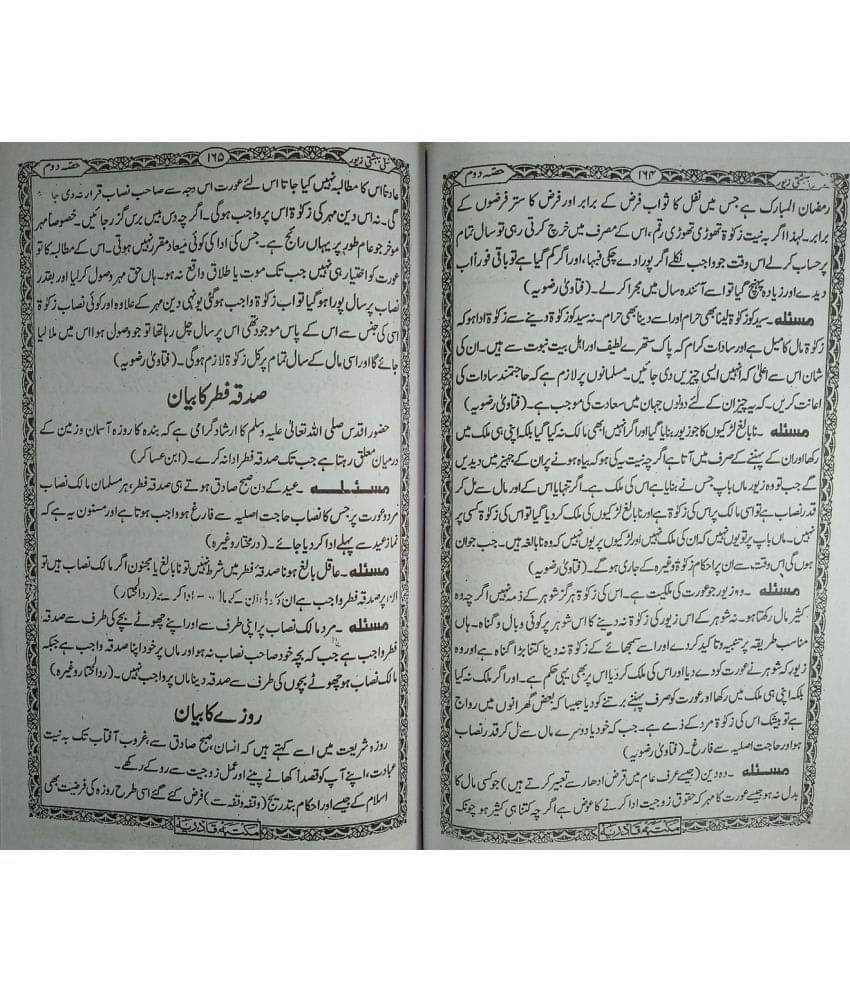 بہشتی زیور
۱۶۴
حصہ دوم
رمضان المبارک ہے جس میں نفل کا ثواب فرض کے برابر اور فرض کا ستر فرضوں کے
برابر۔ لہذا اگر بہ نیت زکوٰۃ تھوڑی تھوڑی رقم، اس کے مصرف میں خرچ کرتی رہی تو سال تمام
پر حساب کرلے اس وقت جو واجب نکلے اگر پورا دے چکی فبہا، اور اگر کم گیا ہے تو باقی فوراً اب
دیدے اور زیادہ پہنچ گیا تو اسے آئندہ سال میں مجرا کرلے۔ (فتاویٰ رضویہ)
مسئلہ ۔ سید کو زکوٰۃ لینا بھی حرام اور اسے دینا بھی حرام۔ نہ سید کو زکوٰۃ دینے سے زکوٰۃ ادا ہو کہ
زکوٰۃ مال کا میل ہے اور سادات کرام کہ پاک ستھرے لطیف اور اہل بیت نبوت سے ہیں۔ ان کی
شان اس سے اعلیٰ کہ انہیں ایسی چیزیں دی جائیں۔ مسلمانوں پر لازم ہے کہ حاجتمند سادات کی
اعانت کریں۔ کہ یہ چیز ان کے لئے دونوں جہان میں سعادت کی موجب ہے۔ (فتاویٰ رضویہ)
مسئلہ ۔ نابالغ لڑکیوں کا جو زیور بنایا گیا اور اگر انہیں ابھی مالک نہ کیا گیا بلکہ اپنی ہی ملک میں
رکھا اور ان کے پہننے کے صرف میں آتا ہے اگرچہ نیت یہ کی ہو کہ بیاہ ہونے پر ان کے جہیز میں دیدیں
گے جب تو وہ زیور ماں باپ جس نے بنایا ہے اس کی ملک ہے۔ اگر تنہا یا اس کے اور مال سے مل کر
قدر نصاب ہے تو اسی مالک پر اس کی زکوٰۃ ہے اور نابالغ لڑکیوں کی ملک کردیا گیا تو اس کی زکوٰۃ کسی پر
نہیں۔ ماں باپ پر تو یوں نہیں کہ ان کی ملک نہیں اور لڑکیوں پر یوں نہیں کہ وہ نابالغہ ہیں۔ جب جوان
ہوں گی اس وقت سے ان پر احکام زکوٰۃ وغیرہ کے جاری ہوگے۔ (فتاویٰ رضویہ)
مسئلہ ۔ وہ زیور جو عورت کی ملکیت ہے۔ اس کی زکوٰۃ ہرگز شوہر کے ذمہ نہیں اگرچہ وہ
کثیر مال رکھتا ہو۔ نہ شوہر کے اس زیور کی زکوٰۃ نہ دینے کا اس شوہر پر کوئی وبال و گناہ۔ ہاں
مناسب طریقہ پر تنبیہ و تاکید کردے اور اسے سمجھائے کہ زکوٰۃ نہ دینا کتنا بڑا گناہ ہے اور وہ
زیور کہ شوہر نے عورت کو دے دیا اور اس کی ملک کردیا اس پر بھی یہی حکم ہے۔ اور اگر ملک نہ کیا
بلکہ اپنی ہی ملک میں رکھا اور عورت کو صرف پہننے برتنے کو دیا جیسا کہ بعض گھرانوں میں رواج
ہے تو بیشک اس کی زکوٰۃ مرد کے ذمے ہے۔ جب کہ خود یا دوسرے مال سے مل کر قدر نصاب
ہو اور حاجت اصلیہ سے فارغ۔ (فتاویٰ رضویہ)
مسئلہ ۔ وہ دین (جیسے عرف عام میں قرض ادھار سے تعبیر کرتے ہیں) جو کسی مال کا
بدل نہ ہو جیسے عورت کا مہر کہ حقوق زوجیت ادا کرنے کا عوض ہے اگرچہ کتنا ہی کثیر ہو چونکہ
مکتبہ قادریہ
بہشتی زیور
۱۶۵
حصہ دوم
عادۃً اس کا مطالبہ نہیں کیا جاتا اس لئے عورت اس وجہ سے صاحب نصاب قرار نہ دی جا
گی۔ نہ اس دین مہر کی زکوٰۃ اس پر واجب ہوگی۔ اگرچہ دس بیس برس گزر جائیں۔ خصوصاً مہر
مؤخر جو عام طور پر یہاں رائج ہے۔ جس کی ادا کی کوئی میعاد مقرر نہیں ہوتی۔ اس کے مطالبہ کا تو
عورت کو اختیار ہی نہیں جب تک موت یا طلاق واقع نہ ہو۔ ہاں حق مہر وصول کرلیا اور بقدر
نصاب پر سال پورا ہو گیا تو اب زکوٰۃ واجب ہوگئی یونہی دین مہر کے علاوہ اور کوئی نصاب زکوٰۃ
اسی کی جنس سے اس کے پاس موجود تھی اس پر سال چل رہا تھا تو جو وصول ہوا اس میں ملا لیا
جائے گا اور اسی مال کے سال تمام پر کل زکوٰۃ لازم ہوگی۔ (فتاویٰ رضویہ)
صدقہ فطر کا بیان
حضور اقدس صلی اللہ تعالیٰ علیہ وسلم کا ارشاد گرامی ہے کہ بندہ کا روزہ آسمان و زمین کے
درمیان معلق رہتا ہے جب تک صدقہ فطر ادا نہ کرے۔ (ابن عساکر)
مسئلہ ۔ عید کے دن صبح صادق ہوتے ہی صدقہ فطر، ہر مسلمان مالک نصاب
مرد و عورت پر جس کا نصاب حاجت اصلیہ سے فارغ ہو واجب ہوتا ہے اور مسنون یہ ہے کہ
نماز عید سے پہلے ادا کر دیا جائے۔ (در مختار وغیرہ)
مسئلہ ۔ عاقل بالغ ہونا صدقہ فطر میں شرط نہیں تو نابالغ یا مجنون اگر مالک نصاب ہیں تو
پر صدقہ فطر واجب ہے ادا کرے (ردالمختار)
مسئلہ ۔ مرد مالک نصاب پر اپنی طرف سے اور اپنے چھوٹے بچے کی طرف سے صدقہ
فطر واجب ہے جب کہ بچہ خود صاحب نصاب نہ ہو اور ماں پر خود اپنا صدقہ واجب ہے جبکہ
مالک نصاب ہو چھوٹے بچوں کی طرف سے صدقہ دینا ماں پر واجب نہیں۔ (ردالمختار وغیرہ)
روزے کا بیان
روزہ شریعت میں اسے کہتے ہیں کہ انسان، صبح صادق سے، غروب آفتاب تک بہ نیت
عبادت، اپنے آپ کو قصداً کھانے پینے اور عمل زوجیت سے روکے رکھے۔
اسلام کے جیسے اور احکام بتدریج (وقفہ وقفہ سے) فرض کئے گئے اسی طرح روزہ کی فرضیت بھی
مکتبہ قادریہ